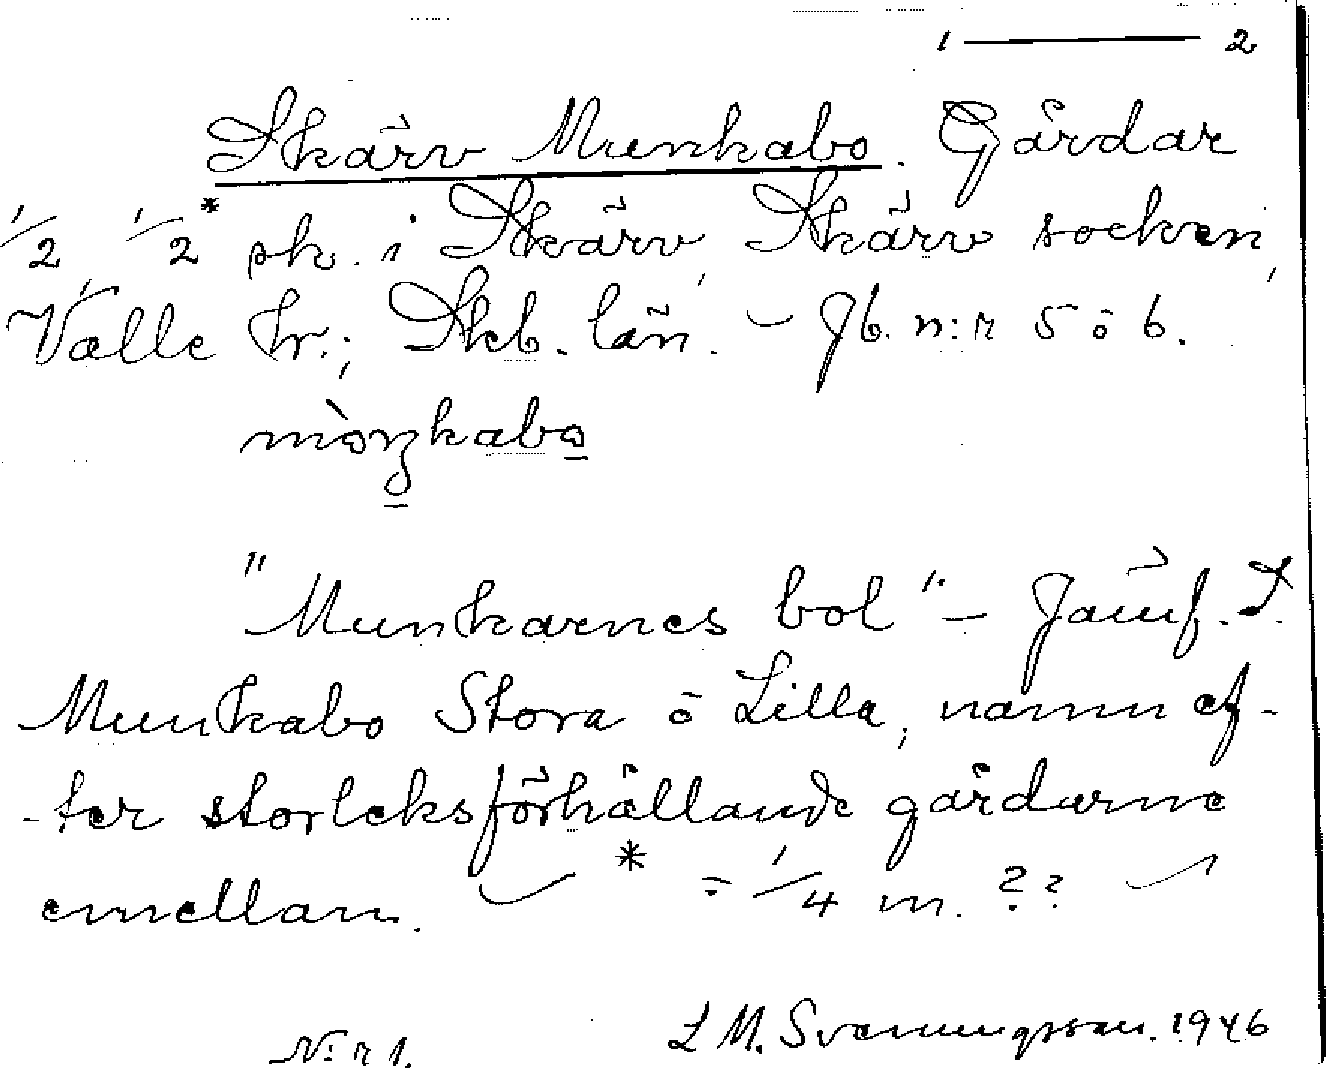 1 — 2
Skärv Munkabo. Gårdar
1/2 1/2* sk. i Skärv, Skärv socken,
Valle hr.; Skb. län. – Jb. n:r 5 o 6.
mòŋkabo
"Munkarnes bol" – Jämf. I
Munkabo Stora o Lilla, namn ef-
-ter storleksförhållande gårdarne
emellan. – * = 1/4 m. ??
N:r 1. L M. Svenungsson. 1946